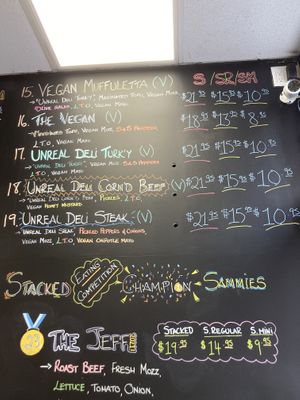 15. Vegan Muffuletta (V) S / SR / SM
→ "Unreal Deli Turk'y", Marinated Tofu, Vegan Mozz $21.95 $15.95 $10.95
Olive Salad, L,T,O, Vegan Mayo
16. The Vegan (V) $8.95
→ Marinated Tofu, Vegan Mozz,
L,T,O, Vegan Mayo
17. Unreal Deli Turk'y (V) $21.95 $15.95 $10.95
→ "Unreal Deli Turk'y", Vegan Mozz
L,T,O, Vegan Mayo
18. Unreal Deli Corn'd Beef (V) $21.95 $15.95 $10.95
→ "Unreal Deli Corn'd Beef", Pickles, L,T,O,
Vegan Honey Mustard
19. Unreal Deli Steak (V) $21.95 $15.95 $10.95
→ Unreal Deli Steak, Pickled Peppers & Onions,
Vegan Mozz, L,T,O, Vegan Chipotle Mayo
Stacked Eating Competition Champion Sammies
The Jeff
Stacked S. Regular S. Mini
$19.95 $14.95 $9.95
→ Roast Beef, Fresh Mozz,
Lettuce, Tomato, Onion,